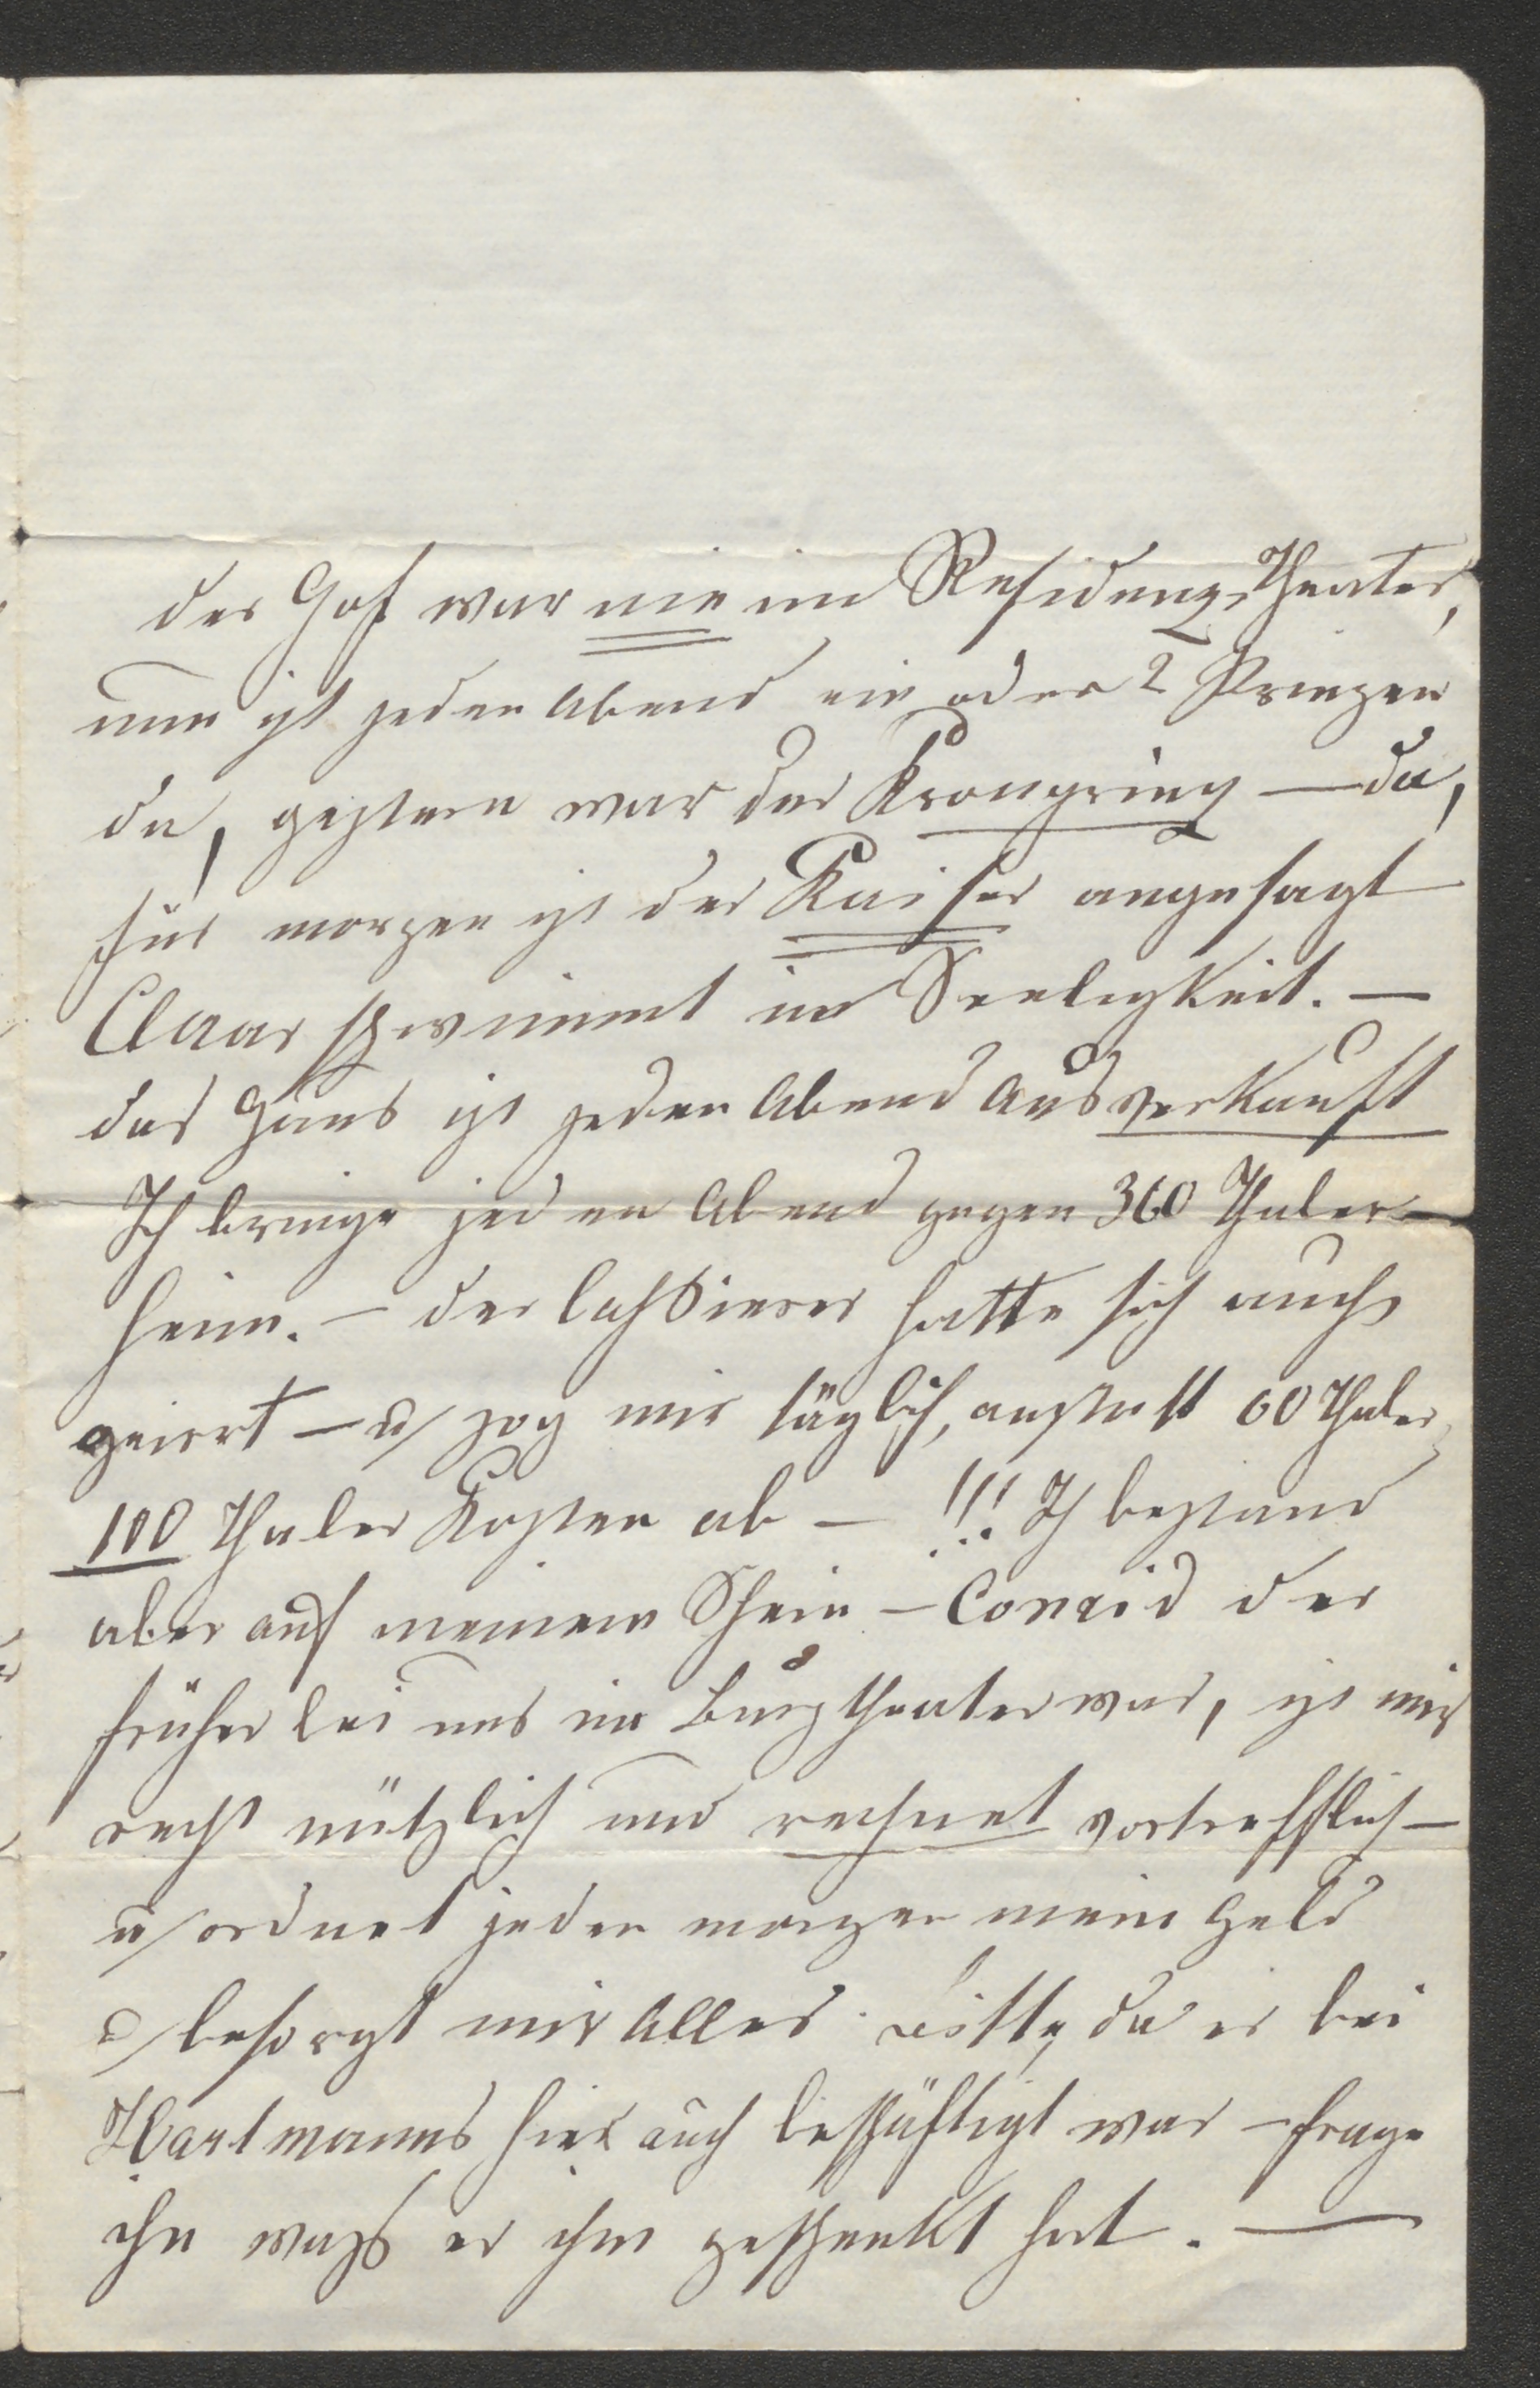 der Hof war nie im Residenz-Theater,
nun ist jeden Abend ein oder 2 Prinzen
da, gestern war der Kronprinz — da,
für morgen ist der Kaiser angesagt
Claar schwimmt in Seeligkeit. —
das Haus ist jeden Abend ausverkauft
Ich bringe jeden Abend gegen 360 Thaler
heim. — der Cassierer hatte sich auch
geirrt — u zog mir täglich, anstatt 60 Thaler,
100 Thaler Kosten ab — !!! Ich bestand
aber auf meinem Schein — Conrid der
früher bei uns im Burgtheater war, ist mir
recht nützlich und rechnet vortrefflich —
u ordnet jeden morgen mein Geld
u besorgt mir Alles. Bitte, da er bei
Hartmanns hier auch beschäftigt war — frage
ihn wass er ihm geschenkt hat. —